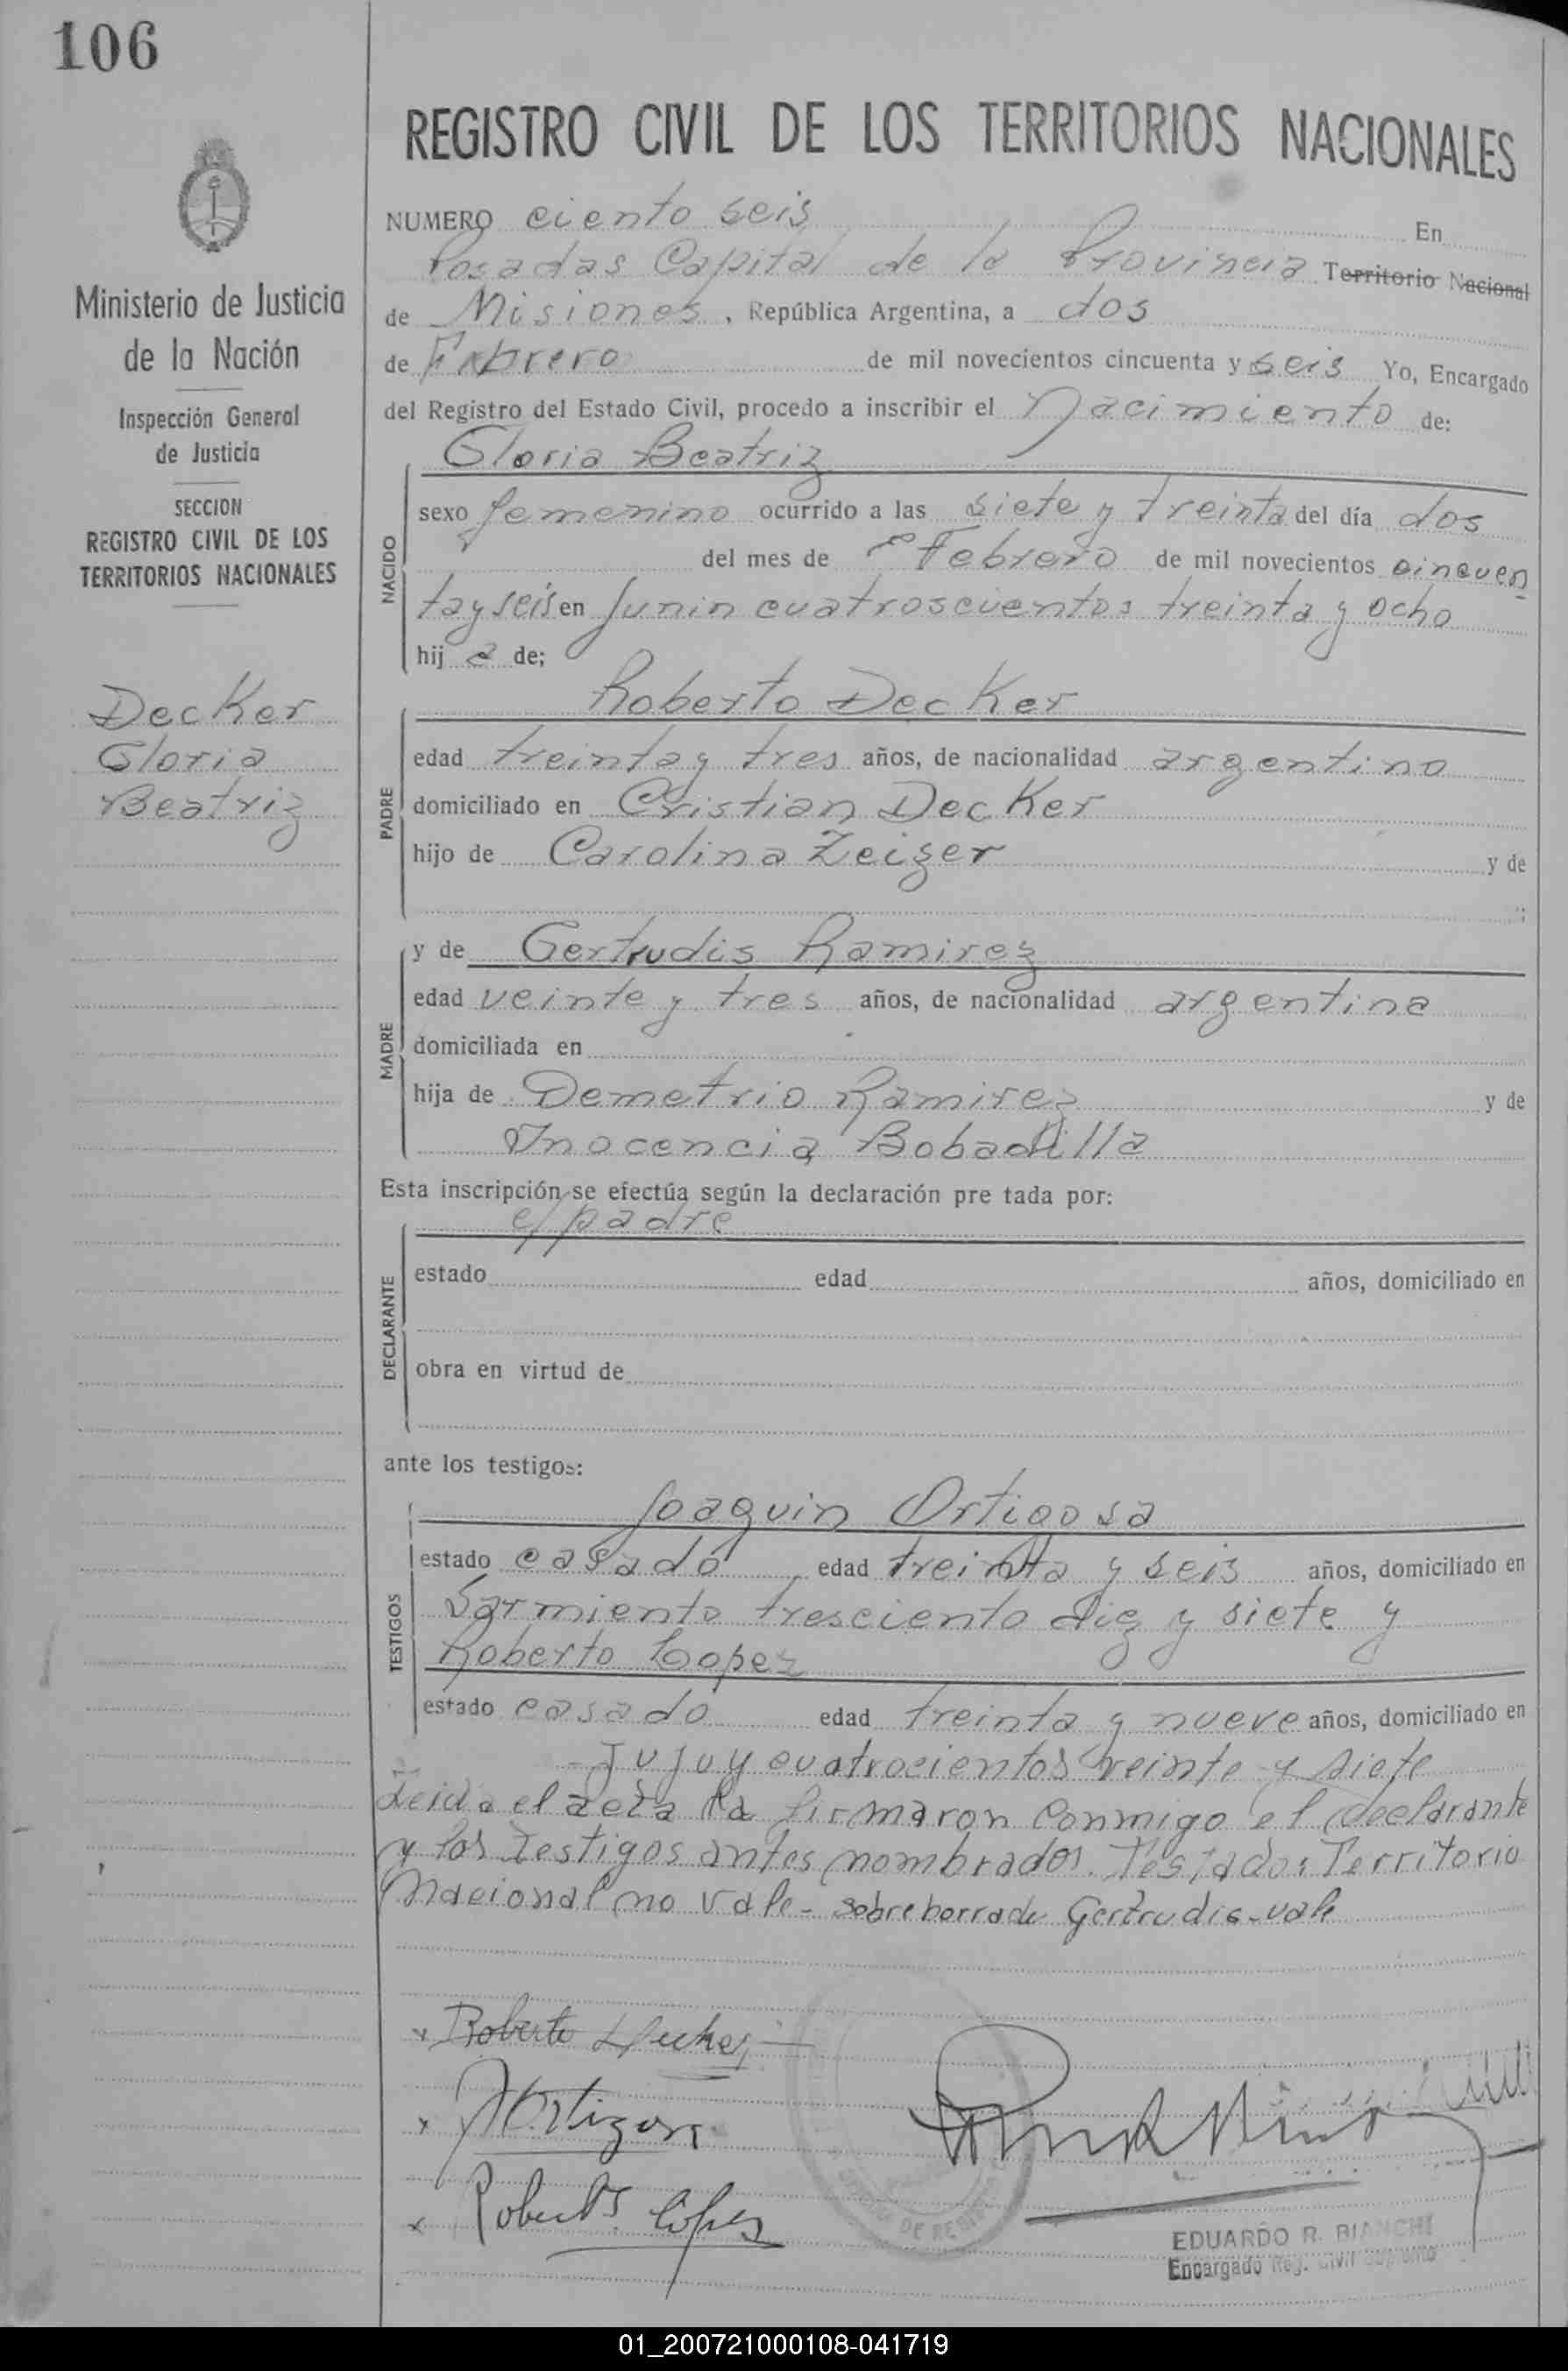 106
REGISTRO CIVIL DE LOS TERRITORIOS NACIONALES
Ministerio de Justicia
de la Nación
Inspección General
de Justicia
SECCION
REGISTRO CIVIL DE LOS
TERRITORIOS NACIONALES
Decker
Gloria
Beatriz
NUMERO ciento seis En
Posadas Capital de la Provincia Territorio Nacional
de Misiones, República Argentina, a dos
de Febrero de mil novecientos cincuenta y seis Yo, Encargado
del Registro del Estado Civil, procedo a inscribir el Nacimiento de:
NACIDO
Gloria Beatriz
sexo femenino ocurrido a las siete y treinta del día dos
del mes de Febrero de mil novecientos cincuen
ta y seis en Junin cuatroscientos treinta y ocho
hija de;
PADRE
Roberto Decker
edad treinta y tres años, de nacionalidad argentino
domiciliado en Cristian Decker
hijo de Carolina Zeiger y de
MADRE
y de Gertrudis Ramirez
edad veinte y tres años, de nacionalidad argentina
domiciliada en
hija de Demetrio Ramirez y de
Inocencia Bobadilla
Esta inscripción se efectúa según la declaración pre tada por:
DECLARANTE
el padre
estado edad años, domiciliado en
obra en virtud de
ante los testigos:
TESTIGOS
Joaquin Ortigosa
estado casado edad treinta y seis años, domiciliado en
Sarmiento tresciento diez y siete y
Roberto Lopez
estado casado edad treinta y nueve años, domiciliado en
Jujuy cuatrocientos veinte y siete
Leida el acta la firmaron conmigo el declarante
y los testigos antes nombrados. Testado: Territorio
Nacional no vale - sobre borrado Gertrudis - vale
Roberto Decker
J Ortigosa
Roberto Lopez
EDUARDO R. BIANCHI
Encargado Reg. Civil
01_200721000108-041719